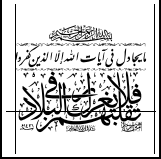 ما يجادل في آيات الله إلا الذين كفروا
فلا يغررك تقلبهم في البلاد